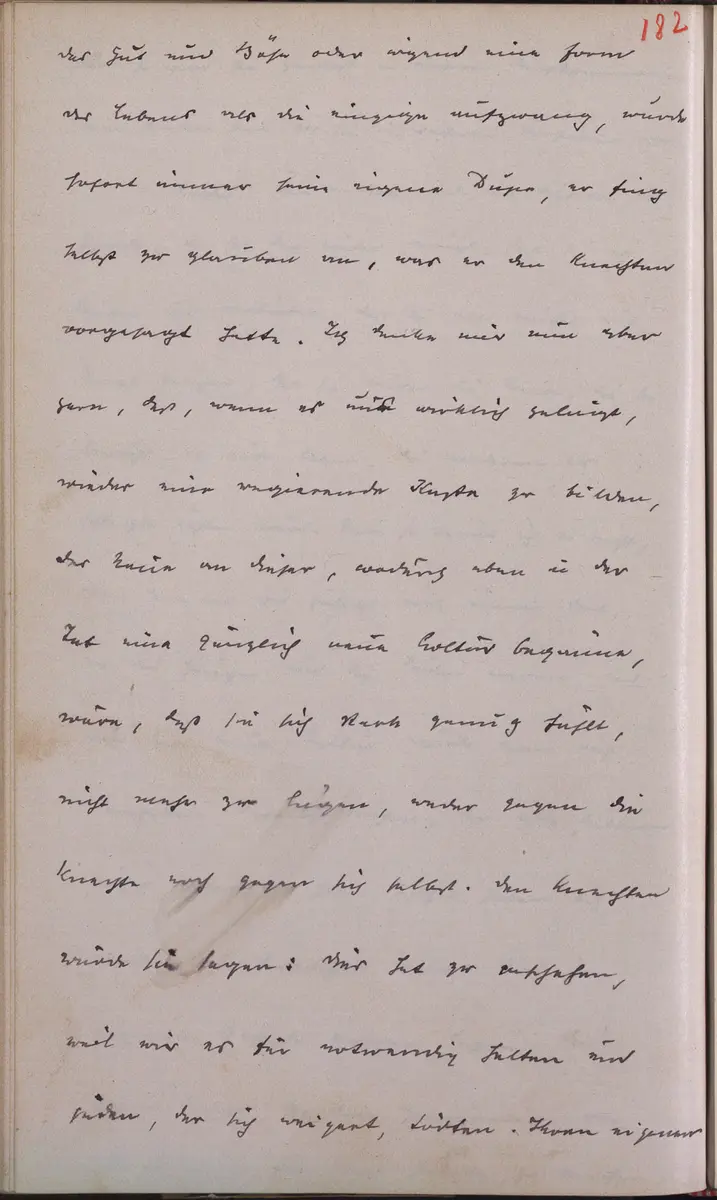 182
das Gut und Böse oder irgend eine Form
des Lebens als die einzige aufzwang, wurde
sofort immer seine eigene Dupe, er fing
selbst zu glauben an, was er den Knechten
vorgesagt hatte. Ich denke mir nun aber
gern, daß, wenn es uns wirklich gelingt,
wieder eine regierende Kaste zu bilden,
das Neue an dieser, wodurch eben in der
Tat eine gänzlich neue Cultur begänne,
wäre, daß sie sich stark genug fühlt,
nicht mehr zu lügen, weder gegen die
Knechte noch gegen sich selbst. Den Knechten
würde sie sagen: dies hat zu geschehen,
weil wir es für notwendig halten und
jeden, der sich weigert, tödten. Ihren eigenen